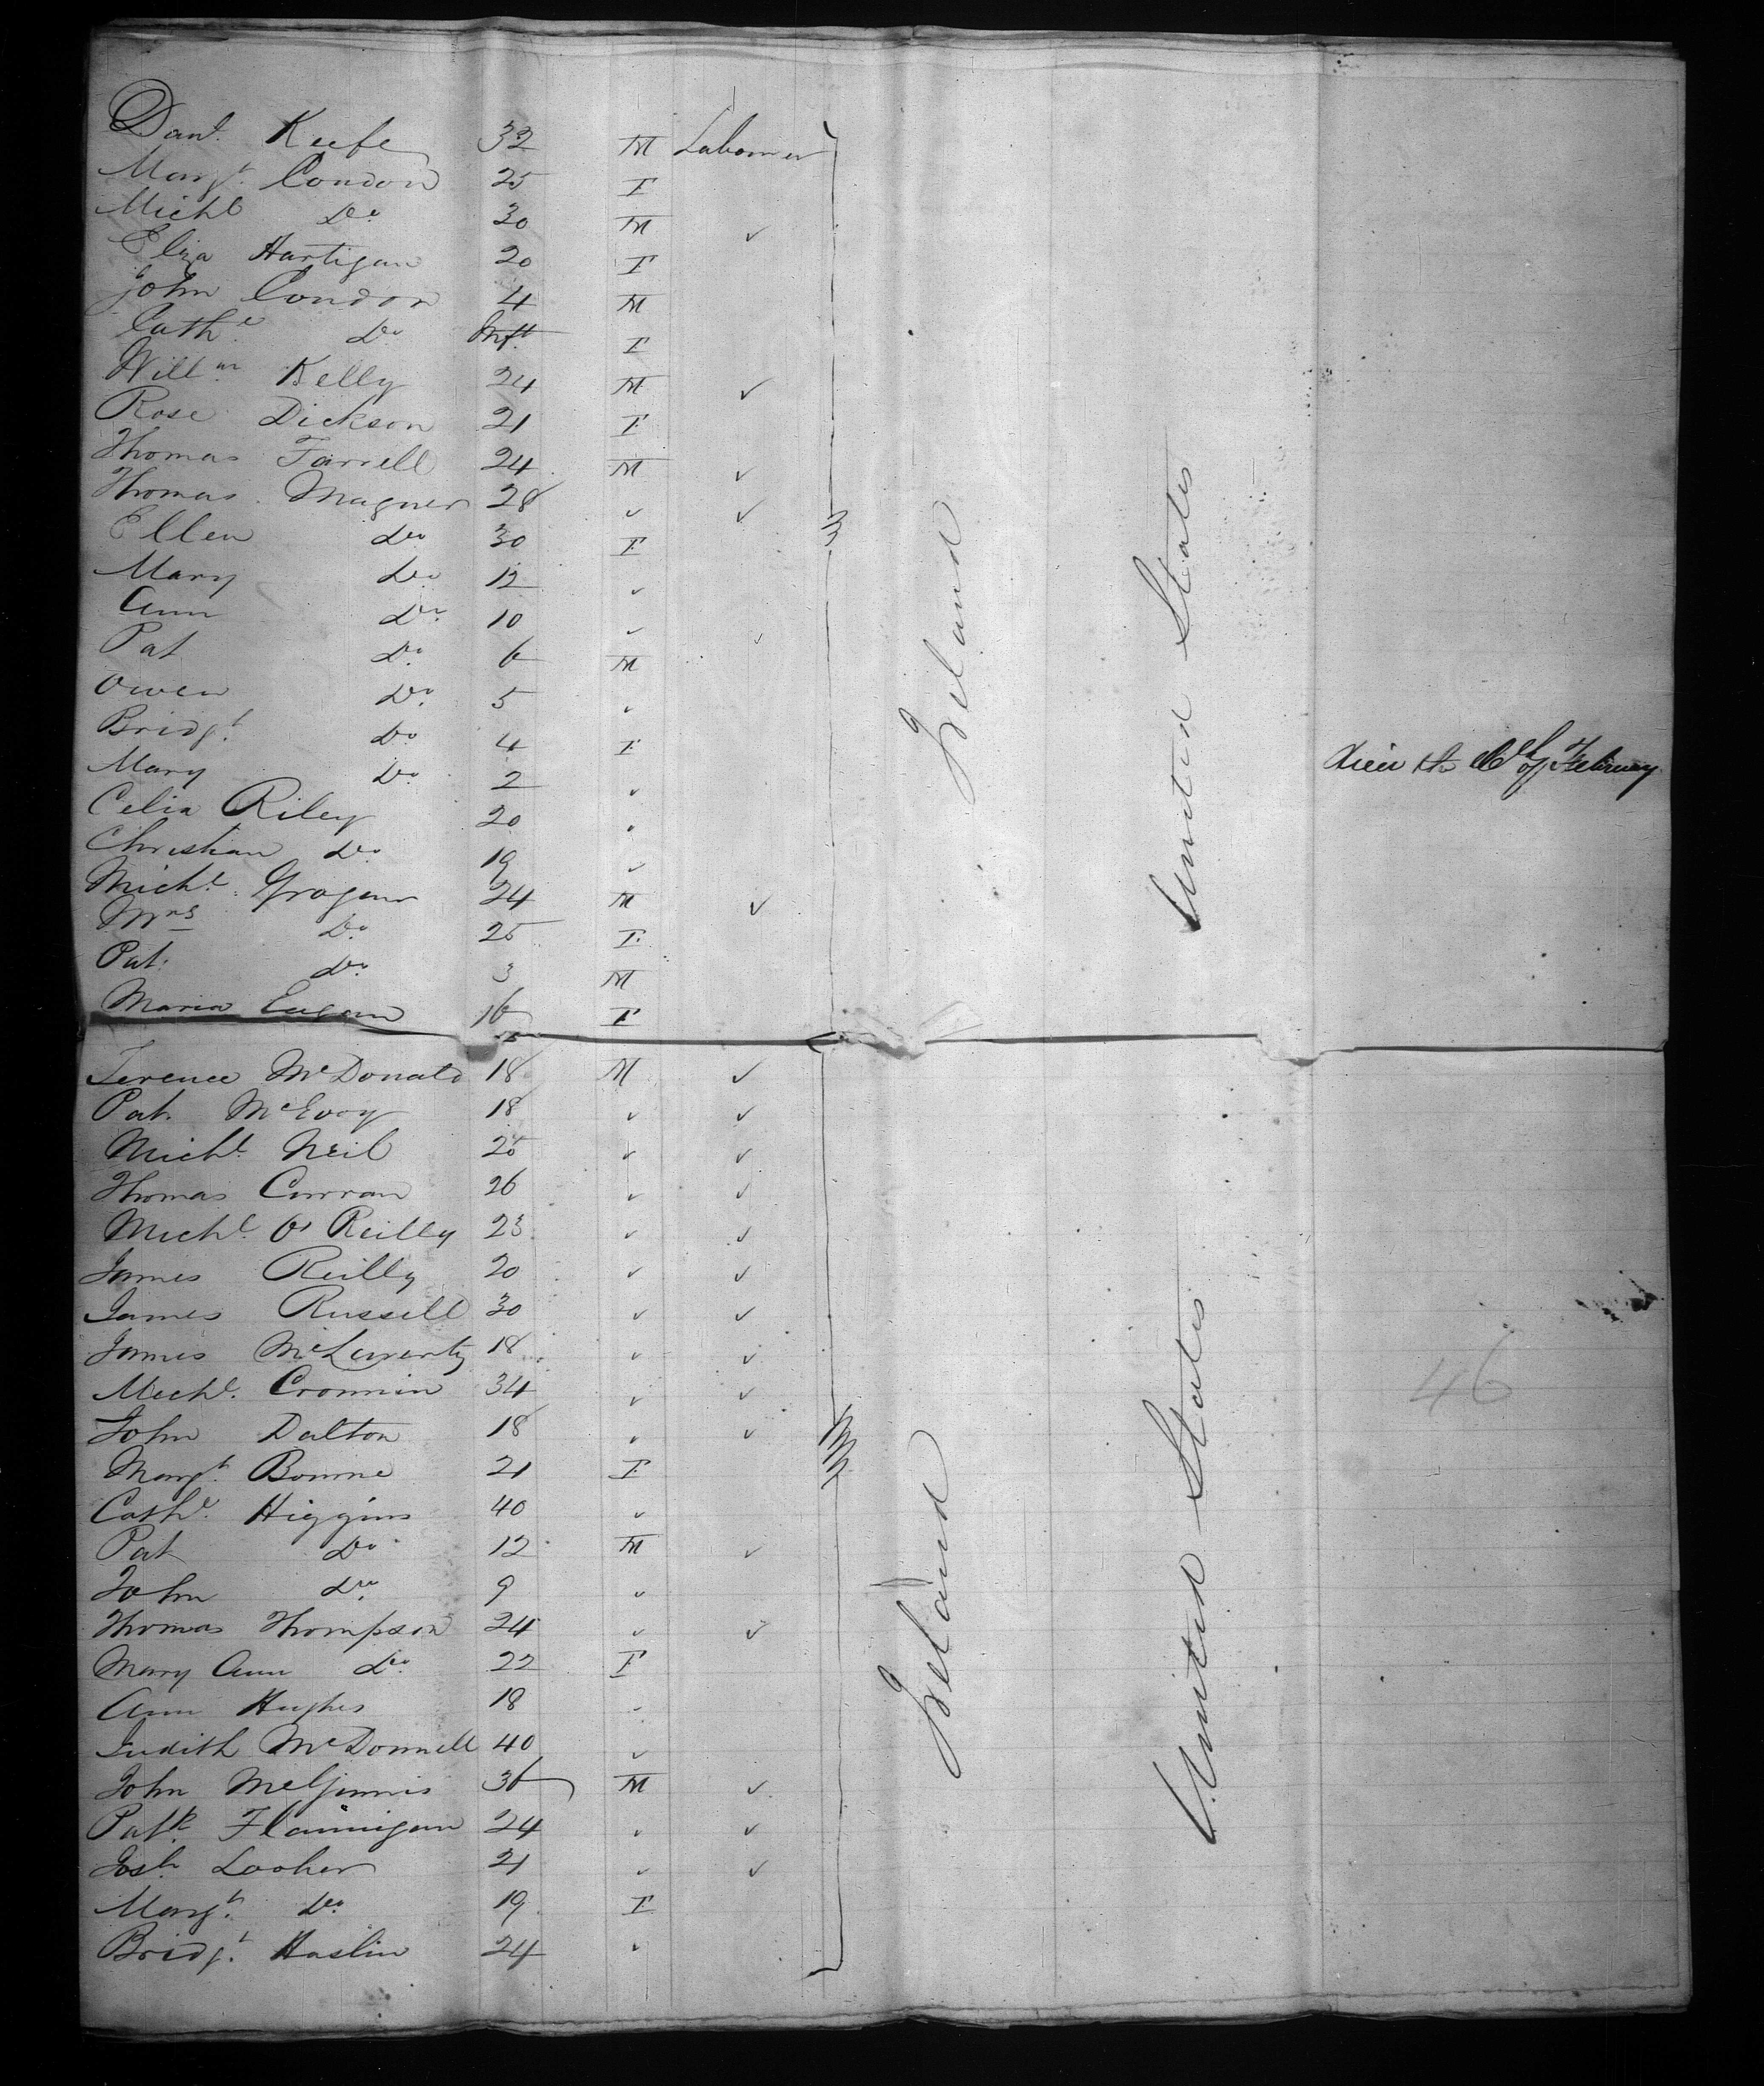 Danl. Keefe 32 M Labourer
Margt. Condon 25 F
Michl Do 30 M ✓
Eliza Hartigan 20 F
John Condon 4 M
Cathe. Do Inft. F
Willm Kelly 24 M ✓
Rose Dickson 21 F
Thomas Farrell 24 M ✓
Thomas Magner 28 ✓ ✓
Ellen Do 30 F
Mary Do 12 ✓
Ann Do 10 ✓ ✓
Pat Do 6 M
Owen Do 5 ✓
Bridgt. Do 4 F
Mary Do 2 ✓ of February
Celia Riley 20 ✓
Christian Do 19 ✓
Michl. Grogan 24 M ✓
Mrs Do 25 F
Pat. Do 3 M
Maria Eagan 16 F
Ireland
United States
Terence McDonald 18 M ✓
Pat. McEvoy 18 ✓ ✓
Michl. Neil 25 ✓ ✓
Thomas Curran 26 ✓ ✓
Michl. O'Reilly 23 ✓ ✓
James Reilly 20 ✓ ✓
James Russell 30 ✓ ✓
James McLaverty 18 ✓ ✓
Michl. Cronnin 34 ✓ ✓
46
John Dalton 18 ✓ ✓
Margt. Bourne 21 F
Cathe. Higgins 40 ✓
Pat Do 12 M ✓
John Do 9 ✓
Thomas Thompson 24 ✓ ✓
Mary Ann Do 22 F
Ann Hughes 18 ✓
Judith McDonnell 40 ✓
John McGinnis 36 M ✓
Patk. Flannigan 24 ✓ ✓
Josh. Looker 21 ✓ ✓
Margt. Do 19 F
Bridgt. Haslin 24 ✓
Ireland
United States